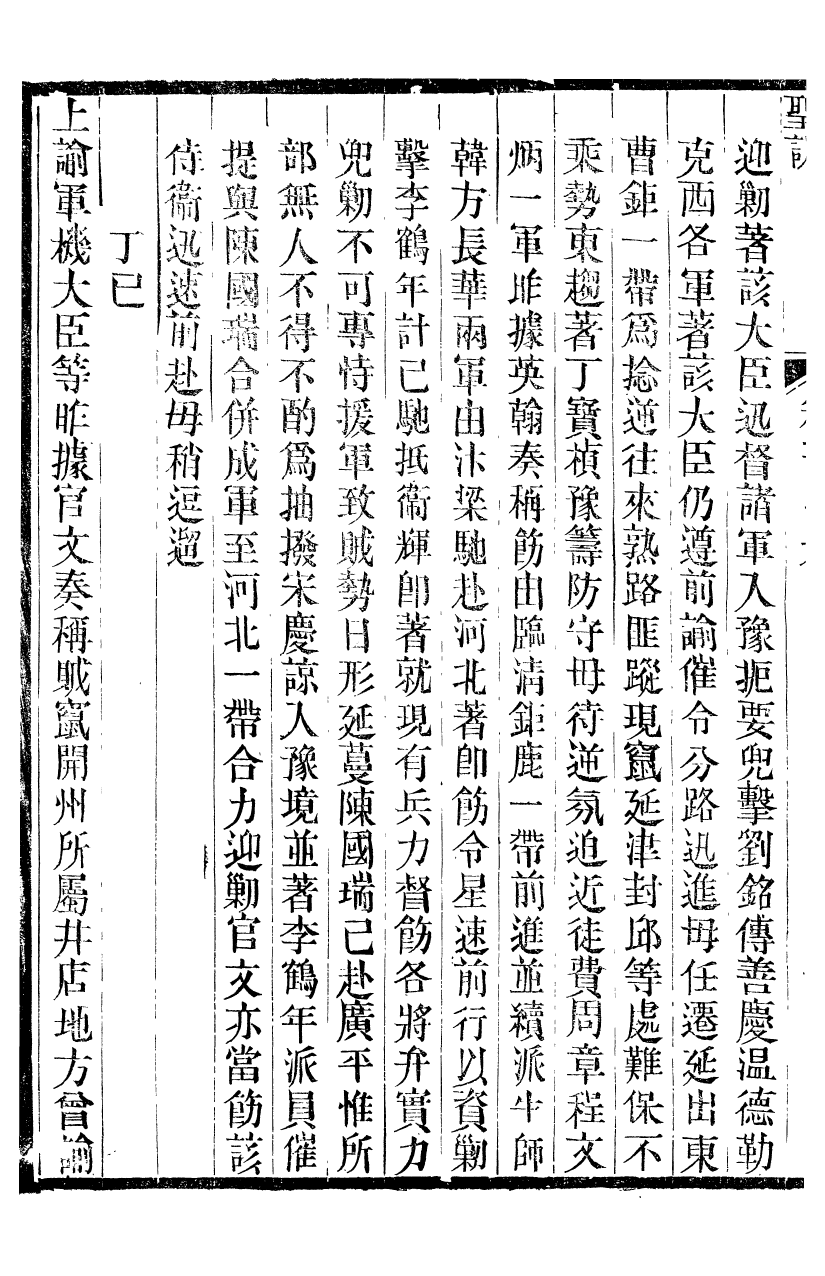 聖訓
迎勦著該大臣迅督諸軍入豫扼要兜擊劉銘傳善慶温德勒
克西各軍著該大臣仍遵前諭催令分路迅進毋任遷延出東
曹鉅一帶爲捻逆往來熟路匪蹤現竄延津封邱等處難保不
乘勢東趨著丁寶楨豫籌防守毋待逆氛迫近徒費周章程文
炳一軍昨據英翰奏稱飭由臨清鉅鹿一帶前進並續派牛師
韓方長華兩軍由汴梁馳赴河北著卽飭令星速前行以資勦
擊李鶴年計已馳抵衞輝卽著就現有兵力督飭各將弁實力
兜勦不可專恃援軍致賊勢日形延蔓陳國瑞已赴廣平惟所
部無人不得不酌爲抽撥宋慶諒入豫境並著李鶴年派員催
提與陳國瑞合併成軍至河北一帶合力迎勦官文亦當飭該
侍衞迅速前赴毋稍逗遛
丁巳
上諭軍機大臣等昨據官文奏稱賊竄開州所屬井店地方曾諭